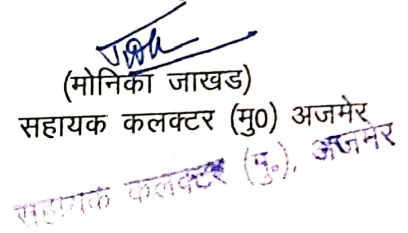 (मोनिका जाखड)
सहायक कलक्टर (मु0) अजमेर
सहायक कलक्टर (मु.), अजमेर